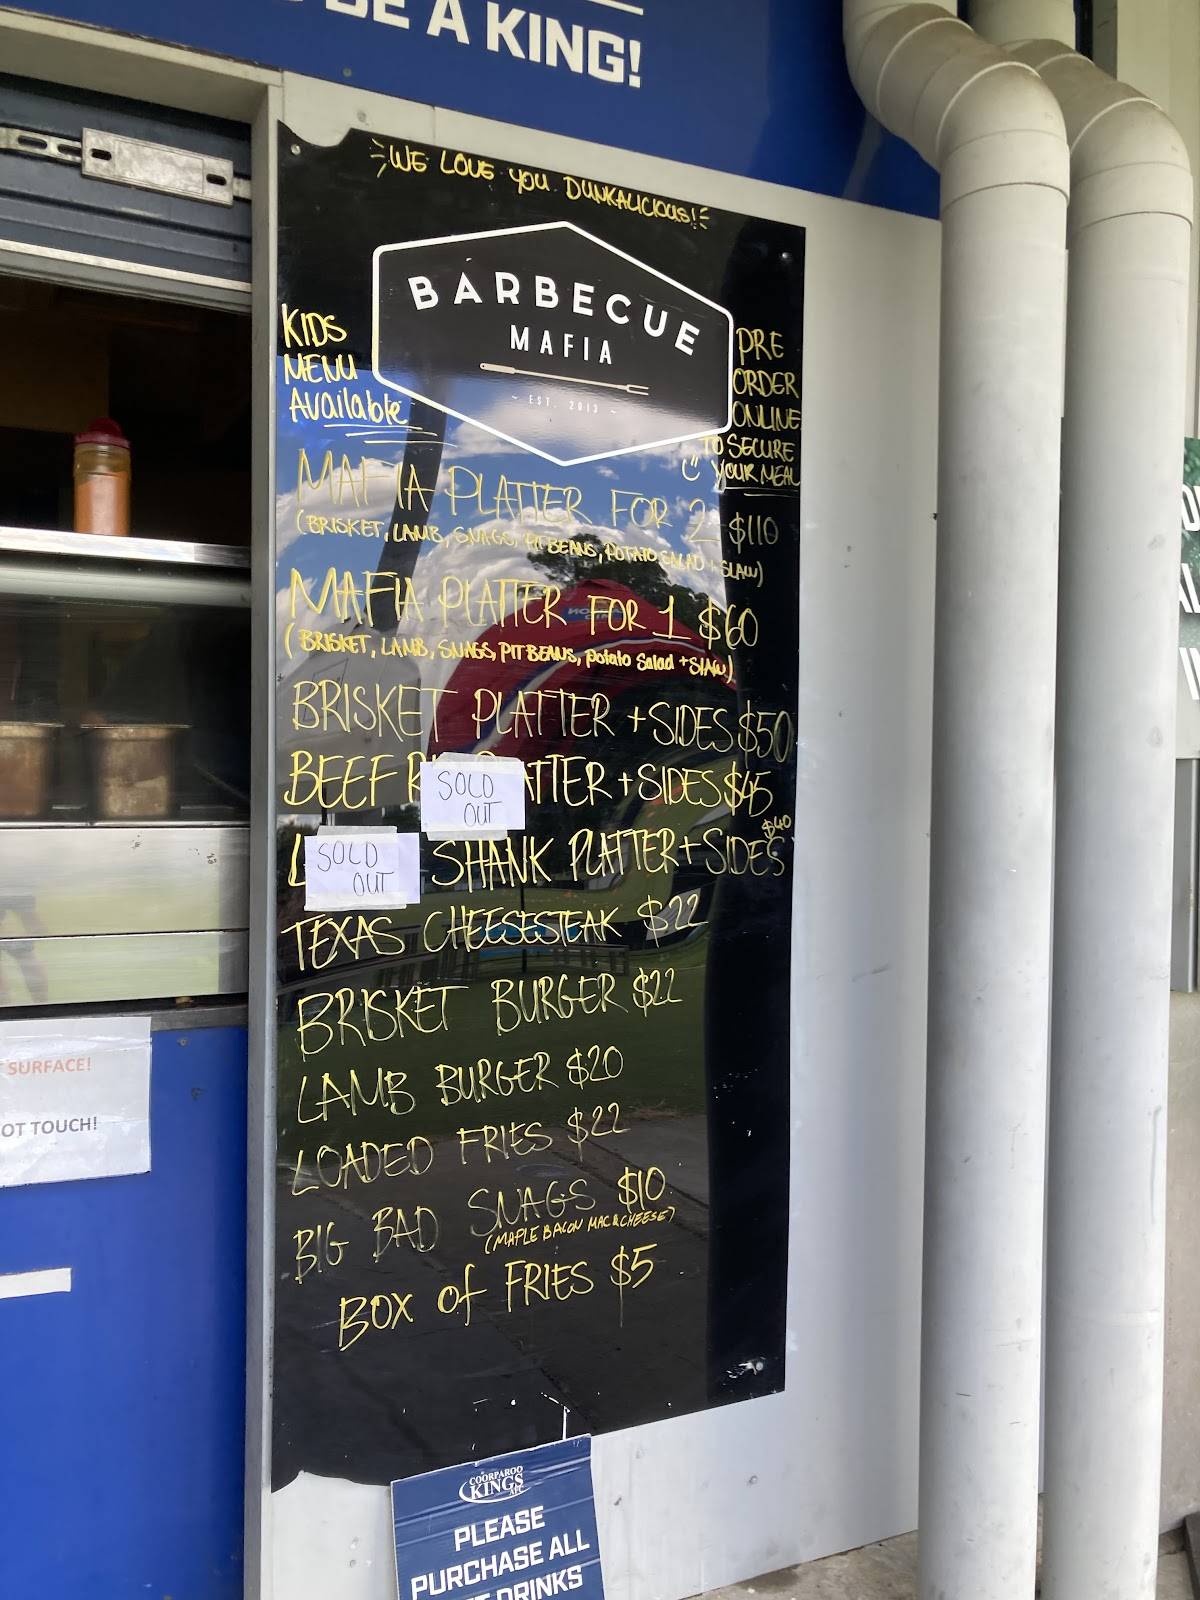 BE A KING!
WE LOVE YOU DUNKALICIOUS!
BARBECUE
MAFIA
~ EST. 2013 ~
KIDS
MENU
Available
PRE
ORDER
ONLINE
TO SECURE
YOUR MEAL
MAFIA PLATTER FOR 2 $110
(BRISKET, LAMB, SNAGS, PIT BEANS, POTATO SALAD + SLAW)
MAFIA PLATTER FOR 1 $60
(BRISKET, LAMB, SNAGS, PIT BEANS, potato Salad + SlAW)
BRISKET PLATTER + SIDES $50
BEEF R SOLD OUT ATTER + SIDES $45
L SOLD OUT SHANK PLATTER + SIDES $40
TEXAS CHEESESTEAK $22
BRISKET BURGER $22
LAMB BURGER $20
LOADED FRIES $22
BIG BAD SNAGS $10
(MAPLE BACON MAC & CHEESE)
BOX of FRIES $5
SURFACE!
OT TOUCH!
COORPAROO
KINGS
AFC
PLEASE
PURCHASE ALL
DRINKS